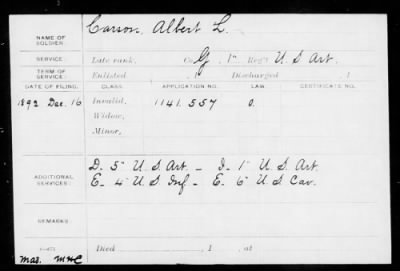 NAME OF SOLDIER: Carson, Albert L.
SERVICE: Late rank, Co. G, 1" Reg't U.S. Art.
TERM OF SERVICE: Enlisted , 1 Discharged , 1
DATE OF FILING. CLASS. APPLICATION NO. LAW. CERTIFICATE NO.
1892 Dec. 16 Invalid, 1141.557 O.
Widow,
Minor,
ADDITIONAL SERVICES: D. 5" U.S. Art. - I. 1" U.S. Art.
E. 4" U.S. Inf. - E. 6" U.S. Cav.
REMARKS:
Died , 1 , at
Mas.